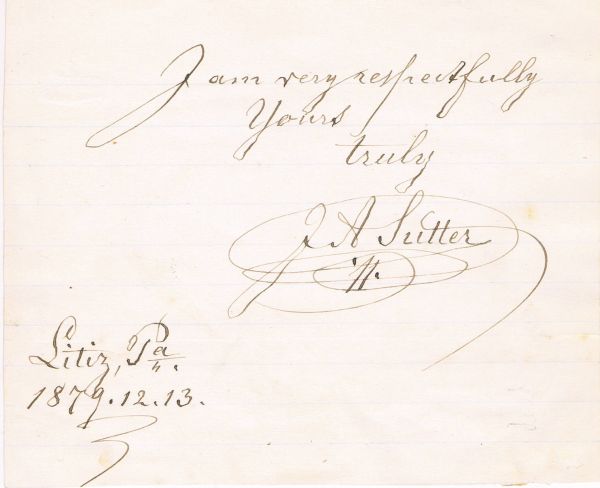 I am very respectfully
Yours
truly
J A Sutter
Litiz, Pa.
1879.12.13.